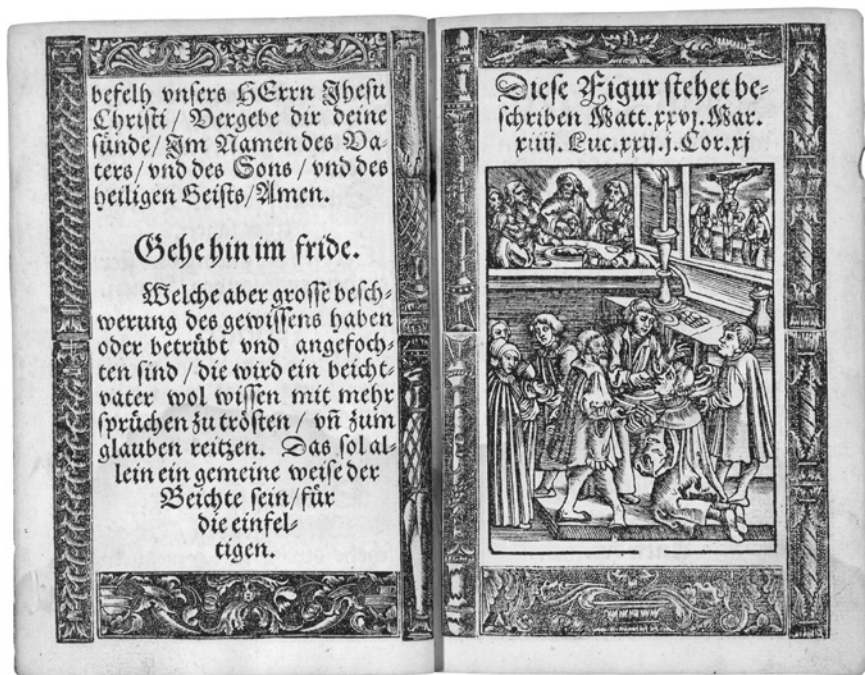 befelh vnsers HErrn Jhesu
Christi / Vergebe dir deine
sünde / Im Namen des Va-
ters / vnd des Sons / vnd des
heiligen Geists / Amen.
Gehe hin im fride.
Welche aber grosse besch-
werung des gewissens haben
oder betrübt vnd angefoch-
ten sind / die wird ein beicht-
vater wol wissen mit mehr
sprüchen zu trösten / vn̄ zum
glauben reitzen. Das sol al-
lein ein gemeine weise der
Beichte sein / für
die einfel-
tigen.
Diese Figur stehet be-
schriben Matt. xxvj. Mar.
xiiij. Luc. xxij. j. Cor. xj